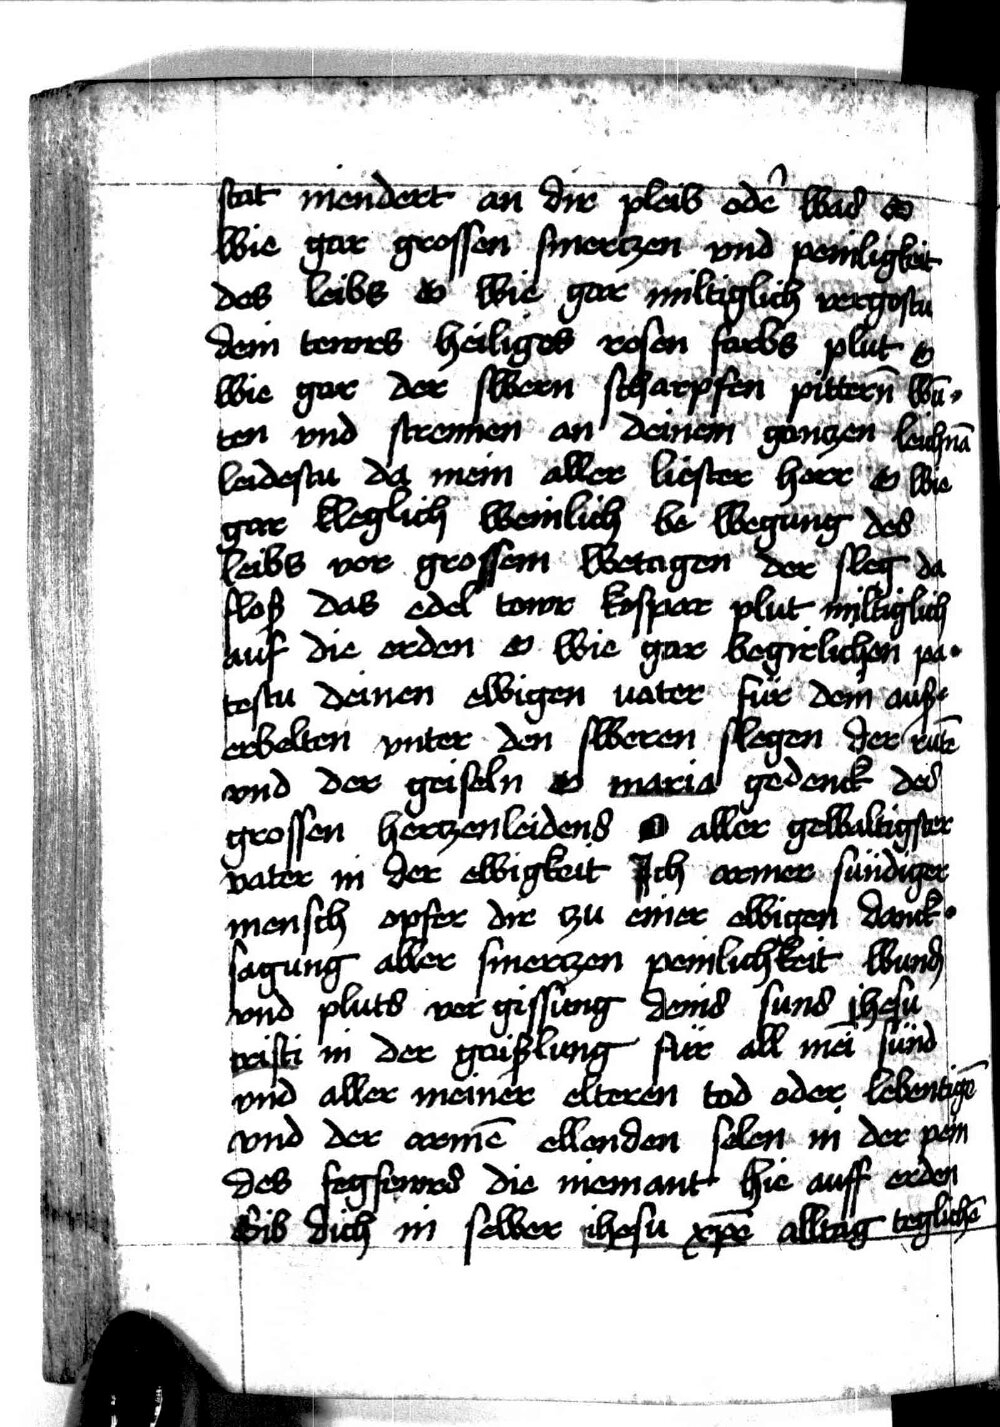 stat niendert an dir pleib odē was O
wie gar grossen smertzen vnd peinligkeit
des leibs O wie gar miltiglich vergostu
dein tewrs heiliges rosen farbs plut O
wie gar der swern scharpfen pittern̄ wū-
ten vnd stremen an deinem gantzen leichnā
leidestu da mein aller liebster herr O wie
gar kleglich weinlich be wegung des
leibs vor grossem wetagen der sleg da
floß das edel tewr kospar plut miltiglich
auf die erden O wie gar begirlichen pa-
testu deinen ewigen vater für dein auß-
erbelten vnter den sweren slegen der rutē
vnd der geiseln O maria gedenck des
grossen hertzenleidens O aller gewaltigster
vater in der ewigkeit Ich armer sündiger
mensch opfer dir tzu einer ewigen danck-
sagung aller smertzen peinlichkeit wund
vnd pluts vergissung deins suns ihesu
cristi in der gaißlung für all mei̅ sünd
vnd aller meiner elteren tod oder lebentigē
vnd der armē ellenden selen in der pein
des fegfewrs die niemant hie auff erden
Gib dich in selber ihesu xp̄e alltag teglichē